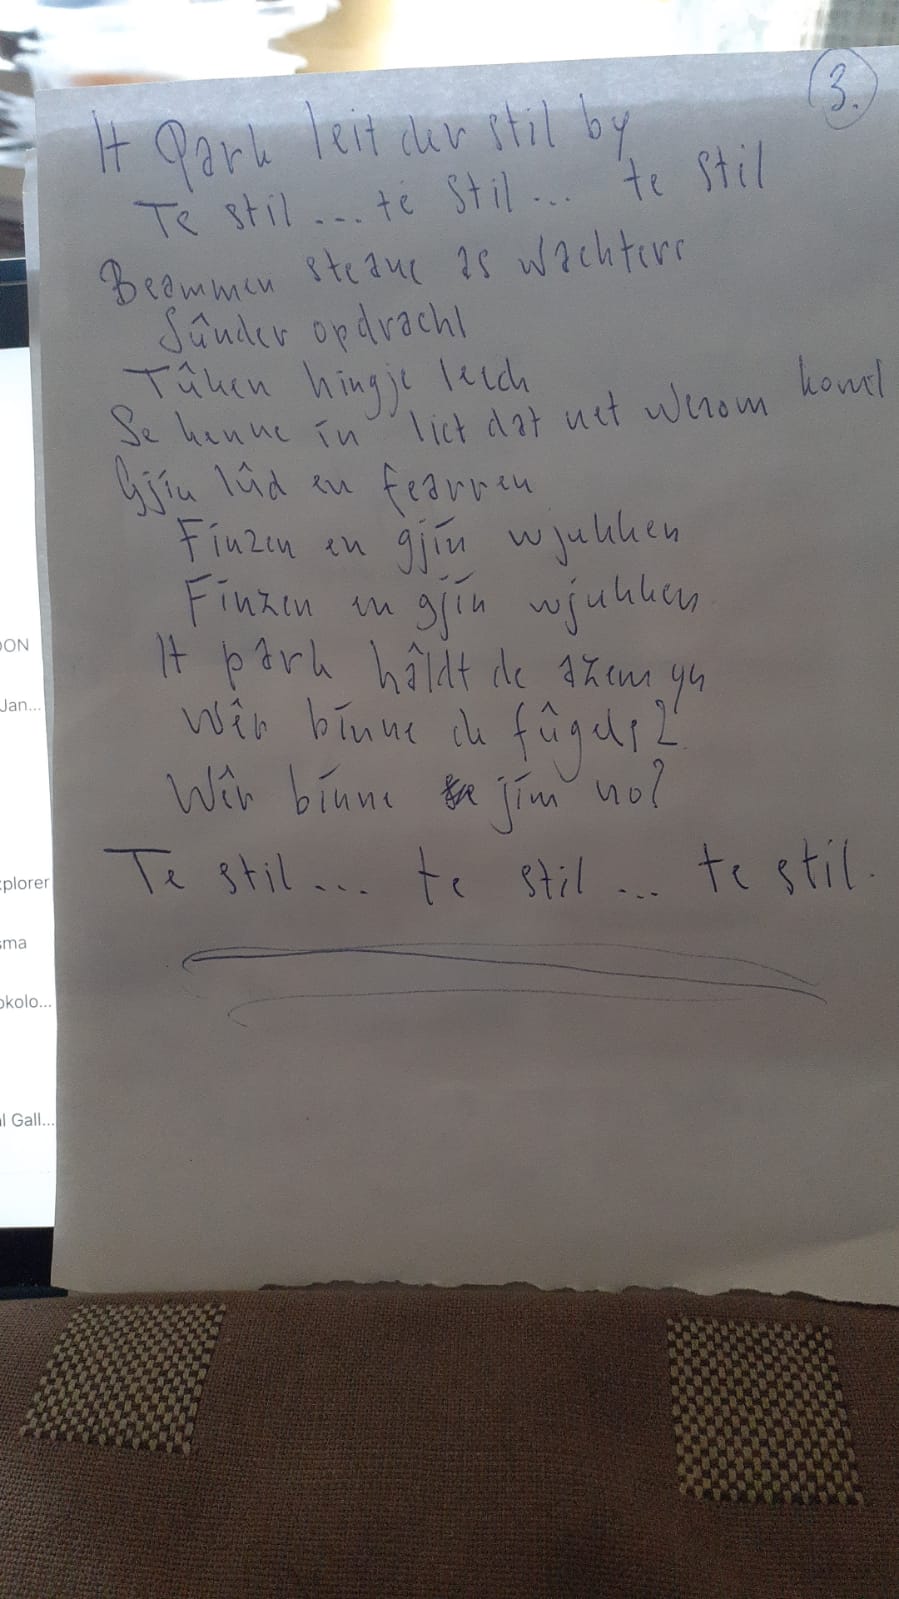 3.
It Park leit der stil by
Te stil ... te stil ... te stil
Beammen steane as wachters
Sûnder opdracht
Tûken hingje leech
Se kenne in liet dat net werom komt
Gjin lûd en fearren
Finzen en gjin wjukken
Finzen en gjin wjukken
It park hâldt de azem yn
Wêr binne de fûgels?
Wêr binne jim no?
Te stil ... te stil ... te stil.
DON
Jan...
xplorer
sma
okolo...
l Gall...